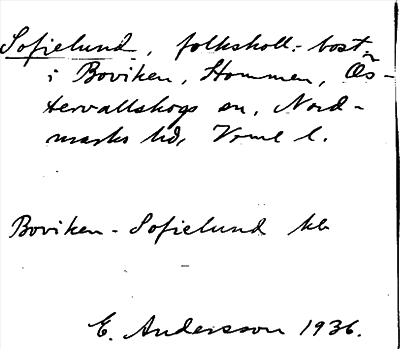 Sofielund, folkskoll.-bost.
i Boviken, Hommen, Ös-
tervallskogs sn, Nord-
marks hd, Vrml l.
Boviken-Sofielund kb
E. Andersson 1936.